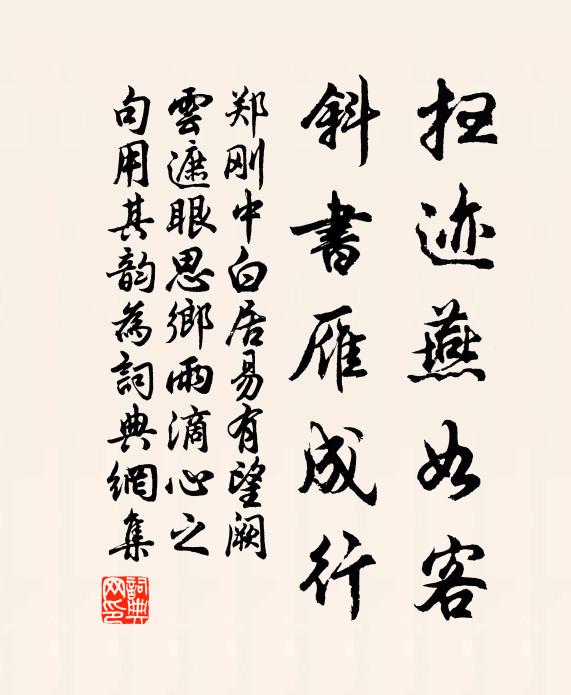 扫迹燕如客
斜书雁成行
郑刚中白居易有望阙
云遮眼思乡雨滴心之
句用其韵为词典网集
词典网印